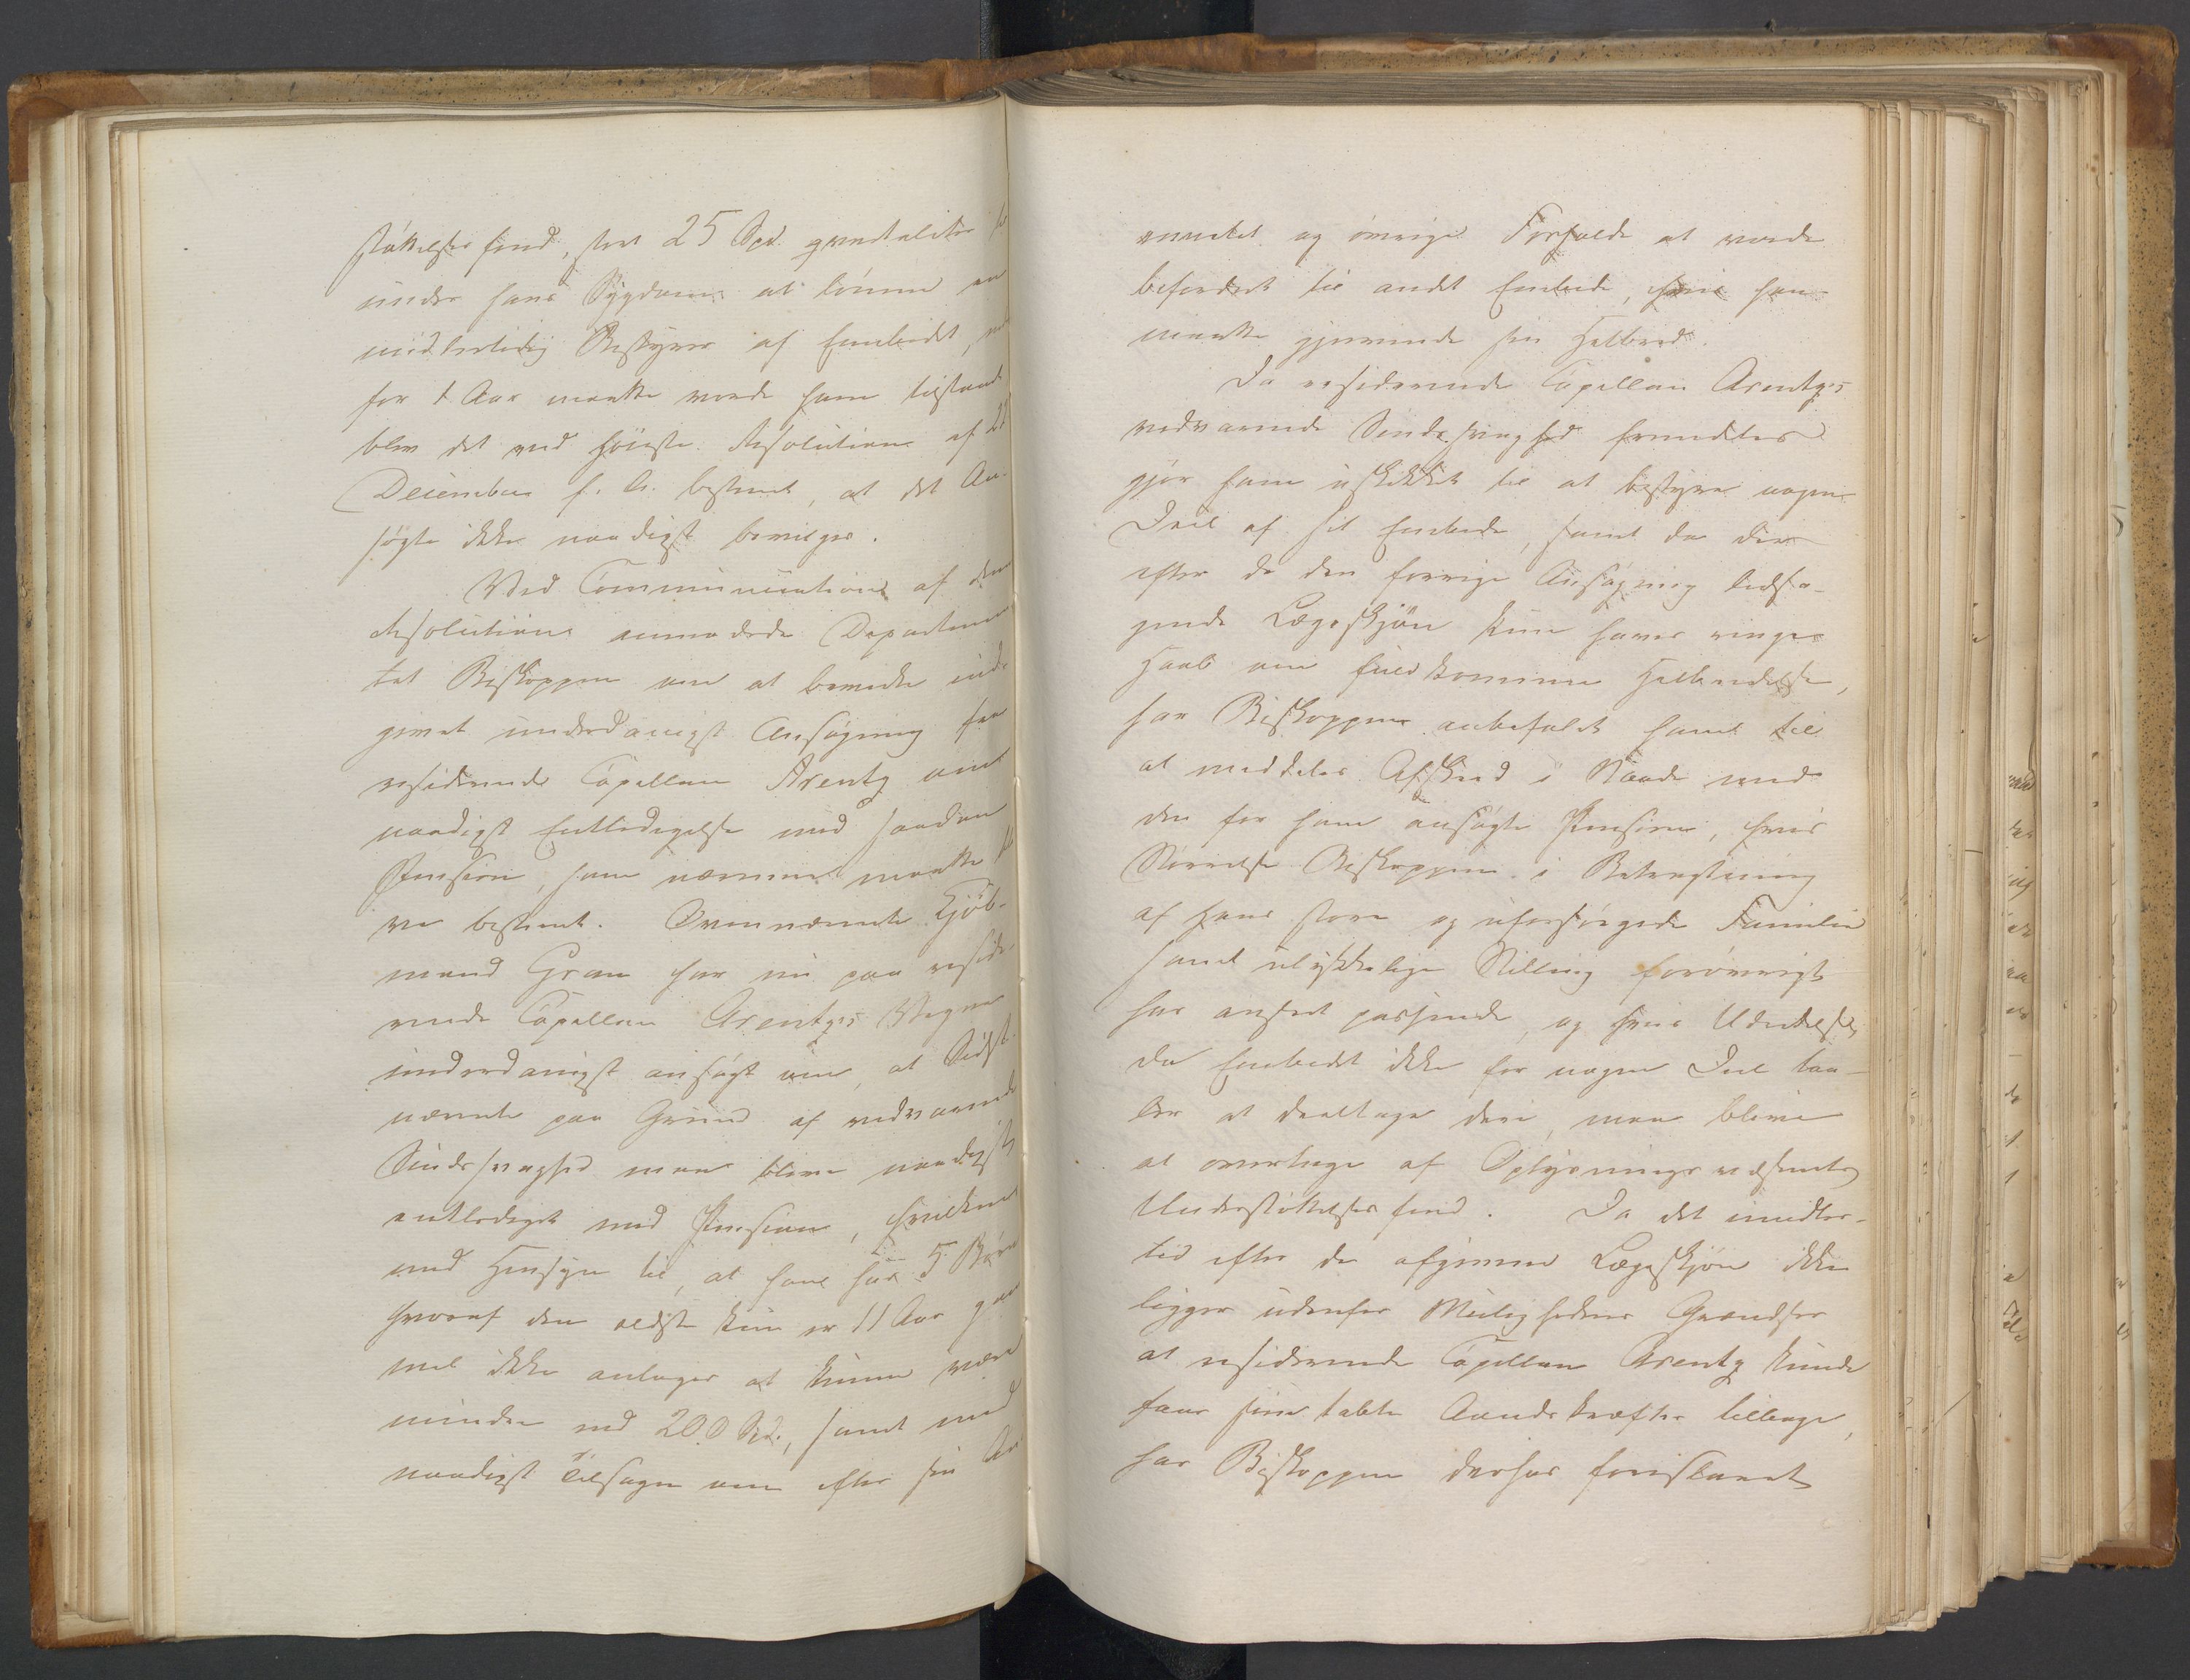 støttelsesfond, stort 25 Spd. qvartaliter
under hans Sygdom at lønne en
midlertidig Bestyrer af Embedet,
for 1 Aar maatte vorde ham tilstaaet
blev det ved høieste Resolution af 21
December f. A. bestemt, at det An-
søgte ikke naadigst bevilges.
Ved Communication af den
Resolution anmodede Departemen
tet Biskoppen om at bevirke ind-
givet underdanigst Ansøgning fra
residerende Capellan Arentz om
naadigst Entledigelse med saadan
Pension, som nærmere maatte bli
ve bestemt. Ovennævnte Kjøb-
mand Gran har nu paa reside-
rende Capellan Arentzes Vegne
underdanigst ansøgt om, at Sidst-
nævnte paa Grund af vedvarende
Sindssvaghed maa blive naadigst
entlediget med Pension, hvilken
med Hensyn til, at han har 5 Børn
hvoraf den ældste kun er 11 Aar gam
mel ikke antages at kunne være
mindre end 200 Spd., samt med
naadigst Tilsagn om efter sin An
ennitet og øvrige Forholde at vorde
befordret til andet Embede, hvis han
maatte gjenvinde sin Helbred.
Da residerende Capellan Arentzes
vedvarende Sindssvaghed fremdeles
gjør ham uskikket til at bestyre nogen
Deel af sit Embede, samt da der
efter de den forrige Ansøgning ledsa-
gende Lægeskjøn kun haves ringe
Haab om fuldkommen Helbredelse,
har Biskoppen anbefalet ham til
at meddeles Afsked i Naade med
den for ham ansøgte Pension, hvis
Størrelse Biskoppen i Betragtning
af hans store og uforsørgede Familie
samt ulykkelige Stilling forøvrigt
har anseet passende, og hvis Udredelse,
da Embedet ikke for nogen Deel taa-
ler at deeltage deri, maa blive
at overtage af Oplysningsvæsenets
Understøttelsesfond. Da det imidler-
tid efter de afgivne Lægeskjøn ikke
ligger udenfor Mulighedens Grændser
at residerende Capellan Arentz kunde
faae sine tabte Aandskræfter tilbage,
har Biskoppen derhos foreslaaet